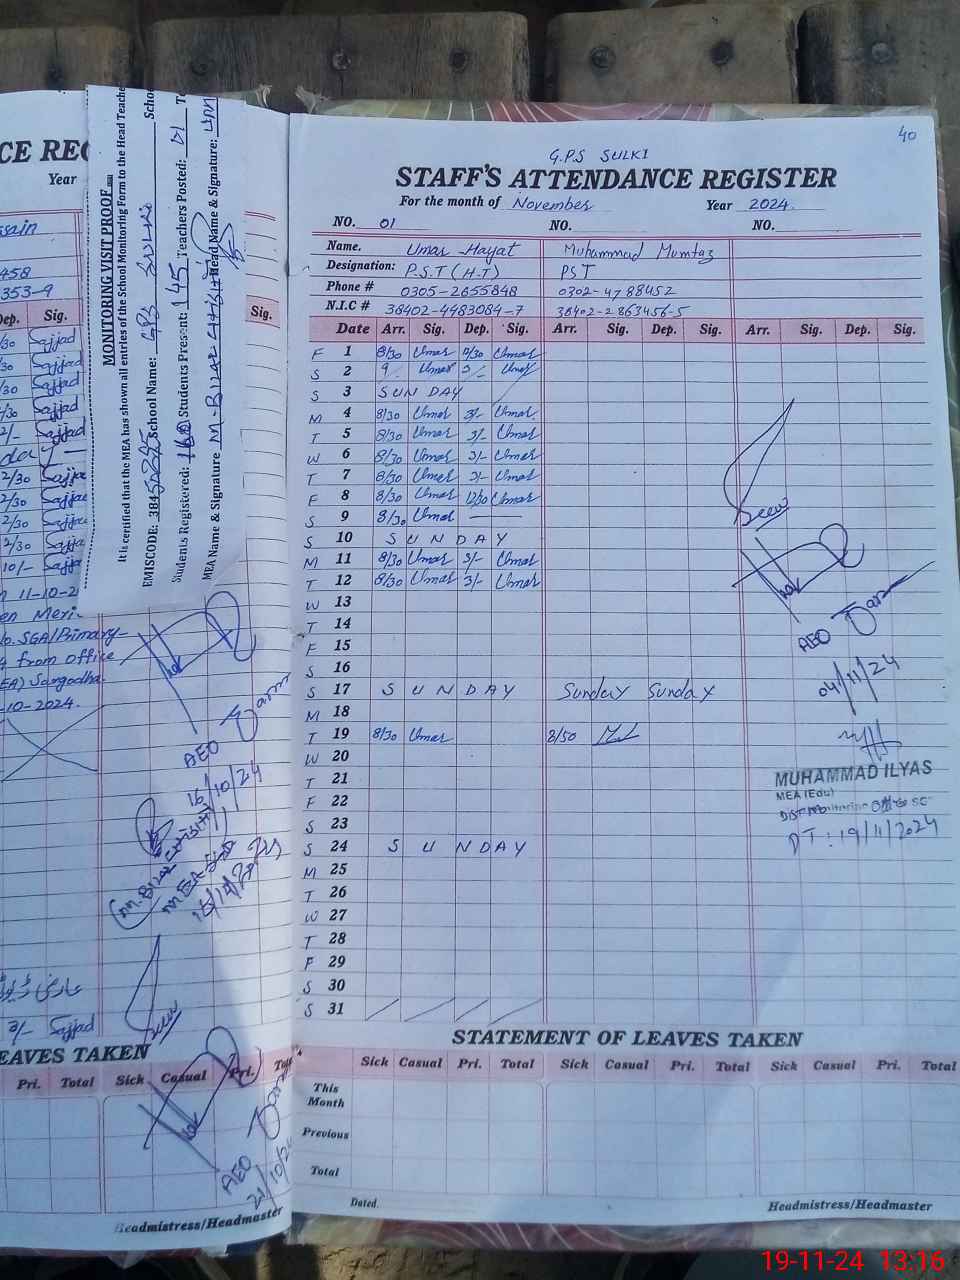 CE REG
Year
458
353-9
Dep. Sig.
Sig.
MONITORING VISIT PROOF
It is certified that the MEA has shown all entries of the School Monitoring Form to the Head Teache
EMISCODE: School Name: GPS Sulki
Students Registered: Students Present: 145 Teachers Posted: 01
MEA Name & Signature Head Name & Signature:
40
G.P.S SULKI
STAFF'S ATTENDANCE REGISTER
For the month of November Year 2024.
NO. 01 NO. NO.
Name. Umar Hayat Muhammad Mumtaz
Designation: P.S.T (H-T) PST
Phone # 0305-2655848 0302-4788452
N.I.C # 38402-4483084-7 38402-2863456-5
Date Arr. Sig. Dep. Sig. Arr. Sig. Dep. Sig. Arr. Sig. Dep. Sig.
F 1 8/30 Umar 12/30 Umar
S 2 9 Umar 3/- Umar
S 3 SUNDAY
M 4 8/30 Umar 3/- Umar
T 5 8/30 Umar 3/- Umar
W 6 8/30 Umar 3/- Umar
T 7 8/30 Umar 3/- Umar
F 8 8/30 Umar 12/30 Umar
S 9 8/30 Umar
S 10 SUNDAY
M 11 8/30 Umar 3/- Umar
T 12 8/30 Umar 3/- Umar
W 13
T 14
F 15
S 16
S 17 SUNDAY Sunday Sunday
M 18
T 19 8/30 Umar 8/50
W 20
T 21
F 22
S 23
S 24 SUNDAY
M 25
T 26
W 27
T 28
F 29
S 30
S 31
Seen
AEO
04/11/24
MUHAMMAD ILYAS
MEA (Edu)
DT: 19/11/2024
n 11-10-2
o. SGA/Primary-
4 from office
EA) Sargodha.
-10-2024.
AEO
15/10/24
Seen
3/- Sajjad
AEO
EAVES TAKEN
Pri. Total Sick Casual Pri. Tot
Headmistress/Headmaster
STATEMENT OF LEAVES TAKEN
Sick Casual Pri. Total Sick Casual Pri. Total Sick Casual Pri. Total
This Month
Previous
Total
Dated.
Headmistress/Headmaster
19-11-24 13:16